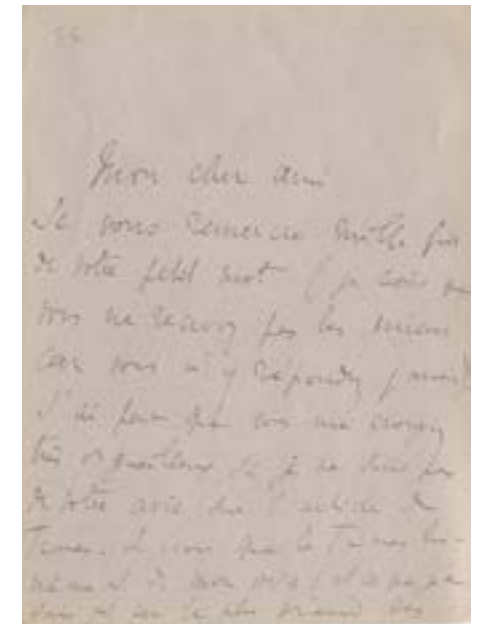 Mon cher ami
Je vous remercie mille fois
de votre petit mot (je crois que
vous ne recevez pas les miens
car vous n'y répondez jamais)
J'ai peur que vous me croyiez
très orgueilleux si je ne suis pas
de votre avis sur l'article du
Times. Je crois que le Times lui-
même est de mon avis